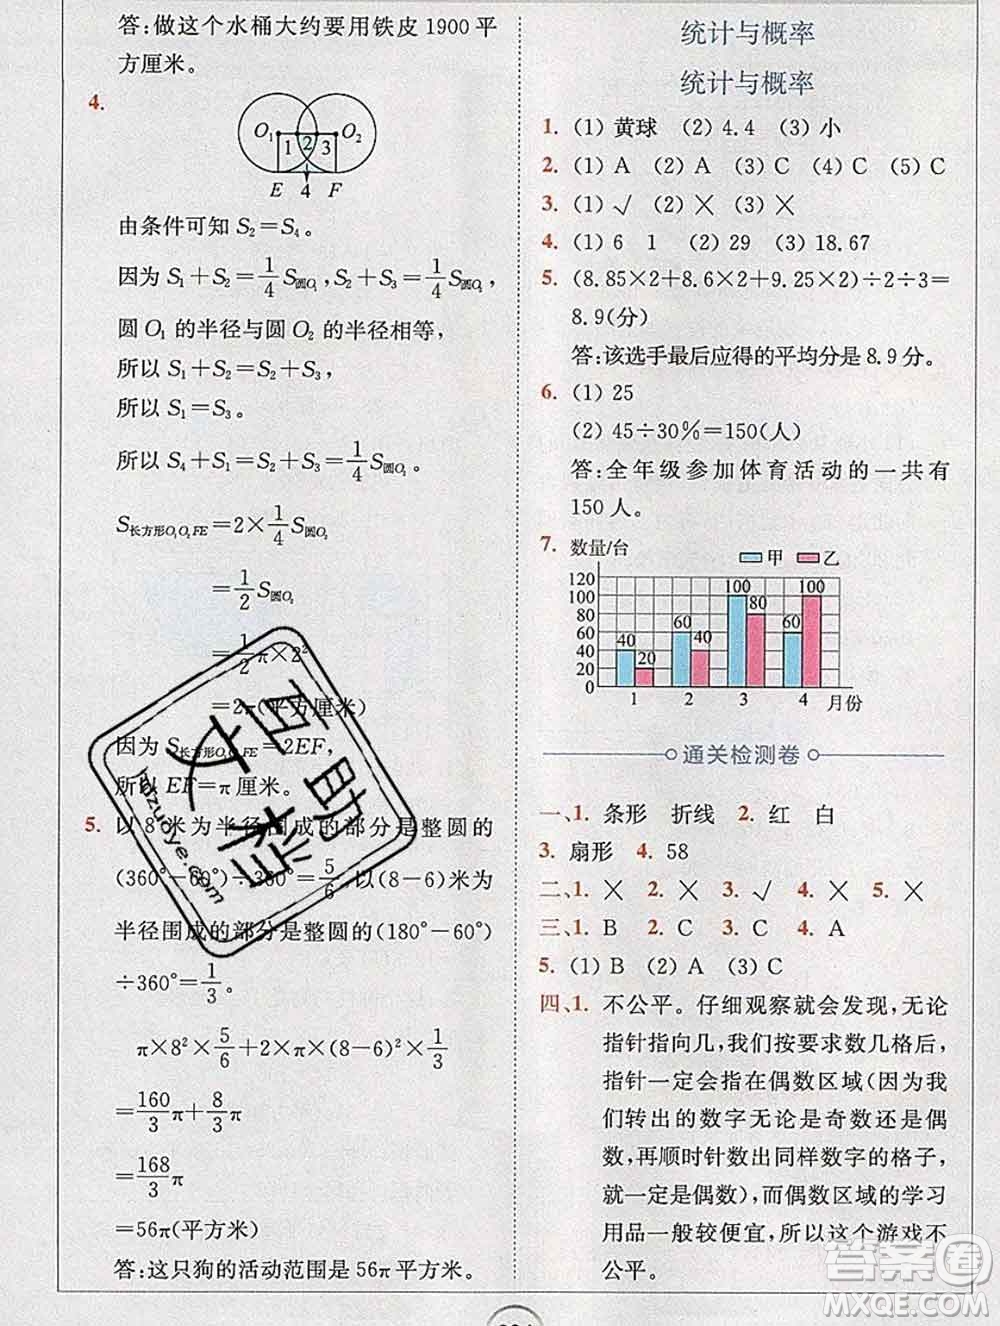 答:做这个水桶大约要用铁皮 1900 平
方厘米。
4.
O₁ O₂
1 2 3
E 4 F
由条件可知 S₂=S₄。
因为 S₁+S₂=1/4 S圆O₁,S₂+S₃=1/4 S圆O₂,
圆 O₁ 的半径与圆 O₂ 的半径相等,
所以 S₁+S₂=S₂+S₃,
所以 S₁=S₃。
所以 S₄+S₁=1/4 S圆O₁。
S长方形O₁O₂FE=2×1/4 S圆O₂
=1/2 S圆O₂
=1/2 π×2²
=2π(平方厘米)
因为 S长方形O₁O₂FE=2EF,
所以 EF=π厘米。
5. 以 8 米为半径围成的部分是整圆的
(360°-60°)÷360°=5/6,以(8-6)米为
半径围成的部分是整圆的(180°-60°)
÷360°=1/3。
π×8²×5/6+2×π×(8-6)²×1/3
=160/3 π+8/3 π
=168/3 π
=56π(平方米)
答:这只狗的活动范围是 56π 平方米。
统计与概率
统计与概率
1. (1) 黄球 (2) 4.4 (3) 小
2. (1) A (2) A (3) C (4) C (5) C
3. (1) √ (2) × (3) ×
4. (1) 6 1 (2) 29 (3) 18.67
5. (8.85×2+8.6×2+9.25×2)÷2÷3=
8.9(分)
答:该选手最后应得的平均分是 8.9 分。
6. (1) 25
(2) 45÷30%=150(人)
答:全年级参加体育活动的一共有
150 人。
7. 数量/台
甲 乙
120
100
80
60
40
20
0
40 20 60 40 100 80 60 100
1 2 3 4 月份
通关检测卷
一、1. 条形 折线 2. 红 白
3. 扇形 4. 58
二、1. × 2. × 3. √ 4. × 5. ×
三、1. B 2. A 3. C 4. A
5. (1) B (2) A (3) C
四、1. 不公平。仔细观察就会发现,无论
指针指向几,我们按要求数几格后,
指针一定会指在偶数区域(因为我
们转出的数字无论是奇数还是偶
数,再顺时针数出同样数字的格子,
就一定是偶数),而偶数区域的学习
用品一般较便宜,所以这个游戏不
公平。
百助
文档
bdzuoye.com
答案圈
MXQE.COM